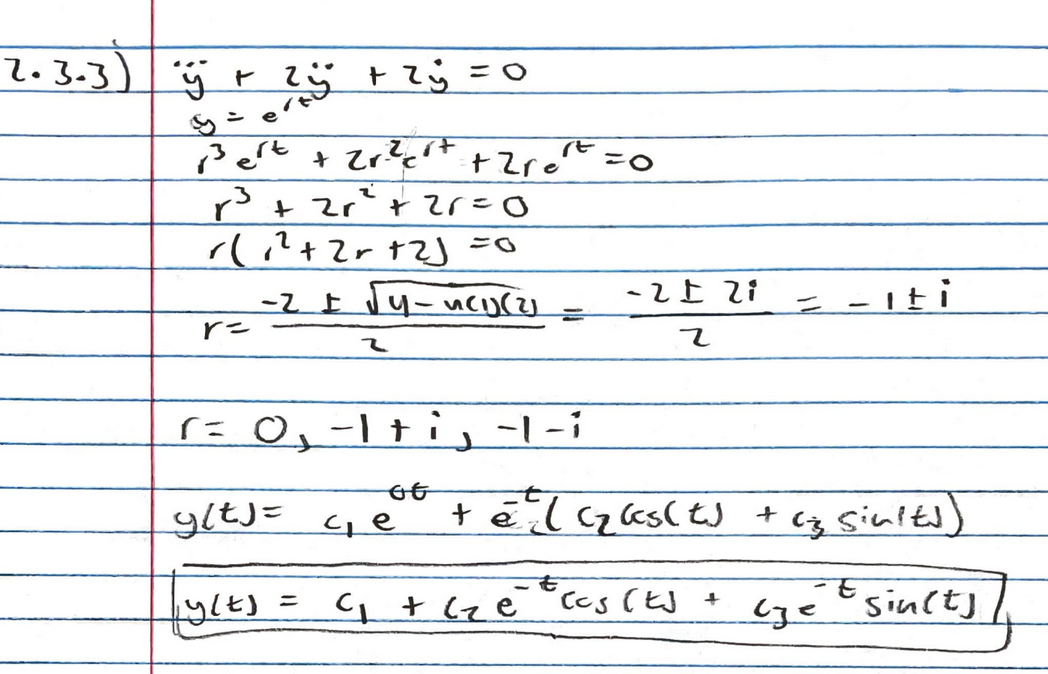 2.3.3) y⃛ + 2ÿ + 2ẏ = 0
y = e^{rt}
r³e^{rt} + 2r²e^{rt} + 2re^{rt} = 0
r³ + 2r² + 2r = 0
r(r² + 2r + 2) = 0
r = (-2 ± √(4 - 4(1)(2)))/2 = (-2 ± 2i)/2 = -1 ± i
r = 0, -1 + i, -1 - i
y(t) = c₁e^{0t} + e^{-t}(c₂cos(t) + c₃sin(t))
y(t) = c₁ + c₂e^{-t}cos(t) + c₃e^{-t}sin(t)